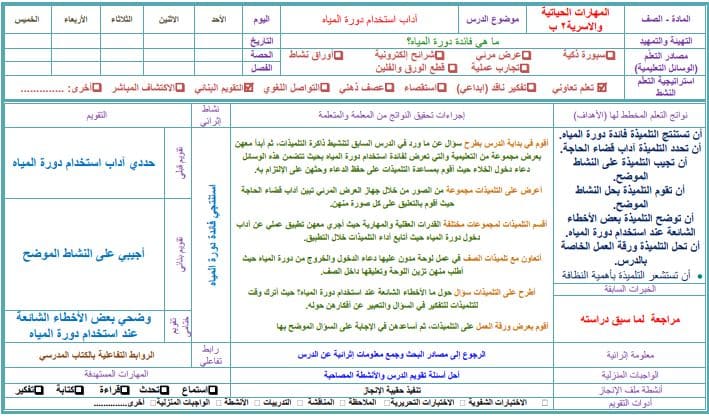 المادة - الصف
المهارات الحياتية والاسرية٢ ب
موضوع الدرس
آداب استخدام دورة المياه
اليوم
الأحد
الاثنين
الثلاثاء
الأربعاء
الخميس
التهيئة والتمهيد
ما هي فائدة دورة المياه؟
التاريخ
مصادر التعلم
(الوسائل التعليمية)
سبورة ذكية
عرض مرئي
شرائح إلكترونية
أوراق نشاط
تجارب عملية
قطع الورق والفلين
الحصة
الفصل
استراتيجية التعلم النشط
تعلم تعاوني
تفكير ناقد (ابداعي)
استقصاء
عصف ذهني
التواصل اللغوي
التقويم البنائي
الاكتشاف المباشر
أخرى: ..............
نواتج التعلم المخطط لها (الأهداف)
إجراءات تحقيق النواتج من المعلمة والمتعلمة
نشاط إثرائي
التقويم
أن تستنتج التلميذة فائدة دورة المياه.
أن تحدد التلميذة آداب قضاء الحاجة.
أن تجيب التلميذة على النشاط الموضح.
أن تقوم التلميذة بحل النشاط الموضح.
أن توضح التلميذة بعض الأخطاء الشائعة عند استخدام دورة المياه.
أن تحل التلميذة ورقة العمل الخاصة بالدرس.
أن تستشعر التلميذة بأهمية النظافة
الخبرات السابقة
مراجعة لما سبق دراسته
أقوم في بداية الدرس بطرح سؤال عن ما ورد في الدرس السابق لتنشيط ذاكرة التلميذات، ثم أبدأ معهن
بعرض مجموعة من التعليمية والتي تعرض لفائدة استخدام دورة المياه بحيث تتضمن هذه الوسائل
دعاء دخول الخلاء حيث أقوم بمساعدة التلميذات على حفظ الدعاء وحثهن على الإلتزام به.
أعرض على التلميذات مجموعة من الصور من خلال جهاز العرض المرئي تبين آداب قضاء الحاجة
حيث أقوم بالتعليق على كل صورة منهن.
أقسم التلميذات لمجموعات مختلفة القدرات العقلية والمهارية حيث أجري معهن تطبيق عملي عن آداب
دخول دورة المياه حيث أتابع أداء التلميذات خلال التطبيق.
أتعاون مع تلميذات الصف في عمل لوحة مدون عليها دعاء الدخول والخروج من دورة المياه حيث
أطلب منهن تزين اللوحة وتعليقها داخل الصف.
أطرح على التلميذات سؤال حول ما الأخطاء الشائعة عند استخدام دورة المياه؟ حيث أترك وقت
للتلميذات للتفكير في السؤال والتعبير عن أفكارهن حوله.
أقوم بعرض ورقة العمل على التلميذات، ثم أساعدهن في الإجابة على السؤال الموضح بها
استنتجي فائدة دورة المياه
تقويم قبلي
حددي آداب استخدام دورة المياه
تقويم بنائي
أجيبي على النشاط الموضح
تقويم ختامي
وضحي بعض الأخطاء الشائعة
عند استخدام دورة المياه
معلومة إثرائية
الرجوع إلى مصادر البحث وجمع معلومات إثرائية عن الدرس
رابط تفاعلي
الروابط التفاعلية بالكتاب المدرسي
الواجبات المنزلية
أحل أسئلة تقويم الدرس والأنشطة المصاحبة
المهارات المستهدفة
أنشطة ملف الإنجاز
تنفيذ حقيبة الإنجاز
استماع
تحدث
قراءة
كتابة
تفكير
أدوات التقويم
الاختبارات الشفوية
الاختبارات التحريرية
الملاحظة
المناقشة
التدريبات
الأنشطة
الواجبات المنزلية
أخرى..............